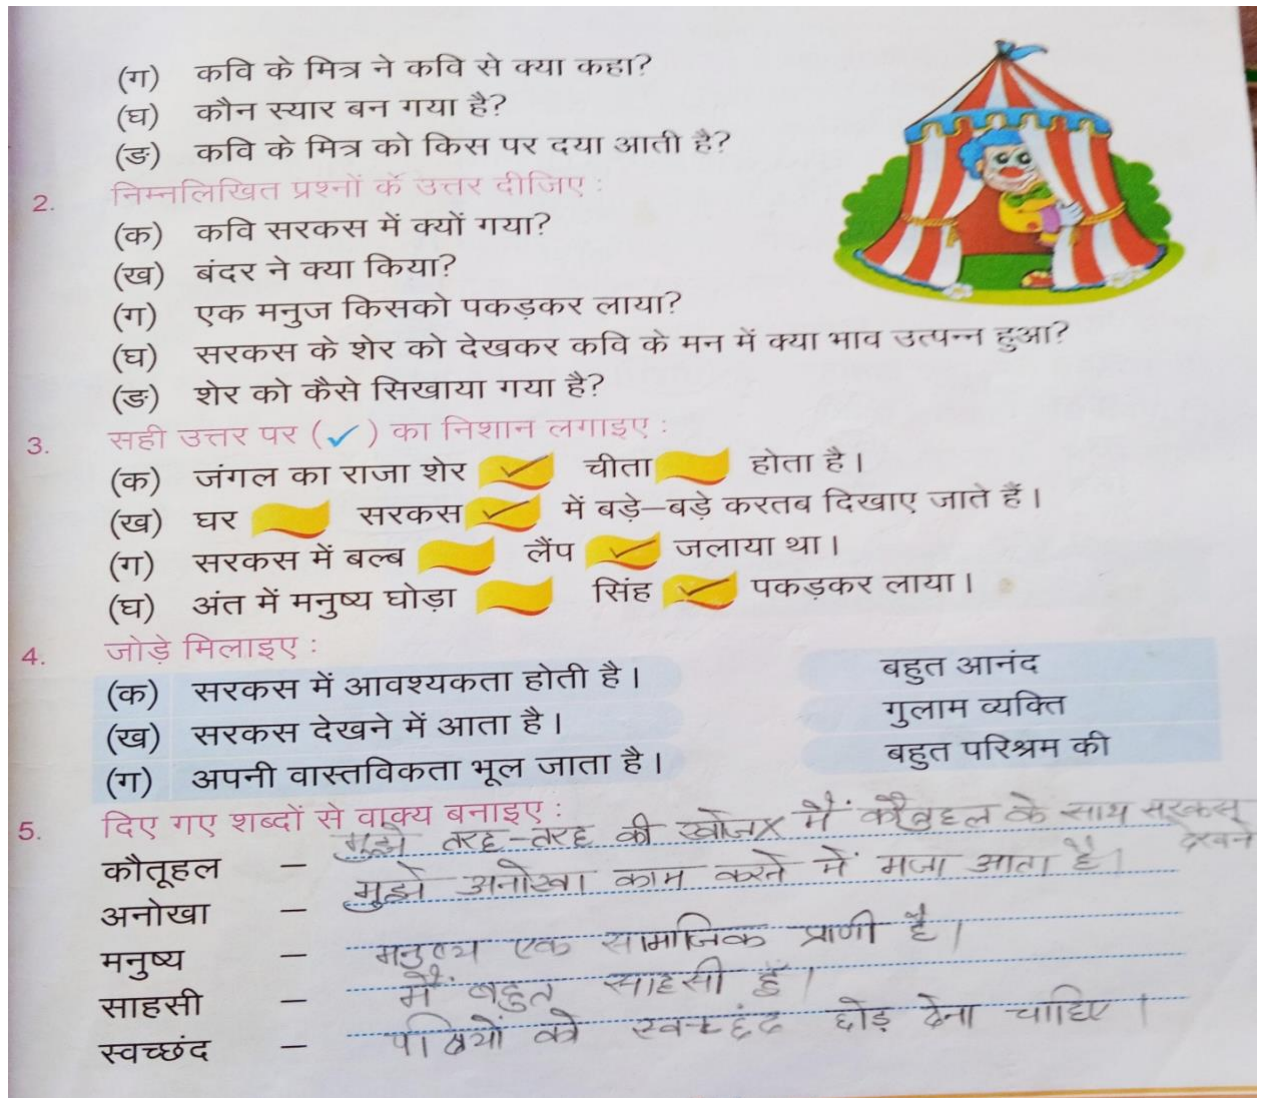 (ग) कवि के मित्र ने कवि से क्या कहा?
(घ) कौन स्यार बन गया है?
(ङ) कवि के मित्र को किस पर दया आती है?
2. निम्नलिखित प्रश्नों के उत्तर दीजिए :
(क) कवि सरकस में क्यों गया?
(ख) बंदर ने क्या किया?
(ग) एक मनुज किसको पकड़कर लाया?
(घ) सरकस के शेर को देखकर कवि के मन में क्या भाव उत्पन्न हुआ?
(ङ) शेर को कैसे सिखाया गया है?
3. सही उत्तर पर (✓) का निशान लगाइए :
(क) जंगल का राजा शेर ✓ चीता होता है।
(ख) घर सरकस ✓ में बड़े-बड़े करतब दिखाए जाते हैं।
(ग) सरकस में बल्ब लैंप ✓ जलाया था।
(घ) अंत में मनुष्य घोड़ा सिंह ✓ पकड़कर लाया।
4. जोड़े मिलाइए :
(क) सरकस में आवश्यकता होती है। बहुत आनंद
(ख) सरकस देखने में आता है। गुलाम व्यक्ति
(ग) अपनी वास्तविकता भूल जाता है। बहुत परिश्रम की
5. दिए गए शब्दों से वाक्य बनाइए :
कौतूहल – मुझे तरह-तरह की मैं के साथ सरकस देखने
अनोखा – मुझे अनोखा काम करने में मजा आता है।
मनुष्य – मनुष्य एक सामाजिक प्राणी है।
साहसी – मैं बहुत साहसी हूँ।
स्वच्छंद – पक्षियों को स्वच्छंद छोड़ देना चाहिए।